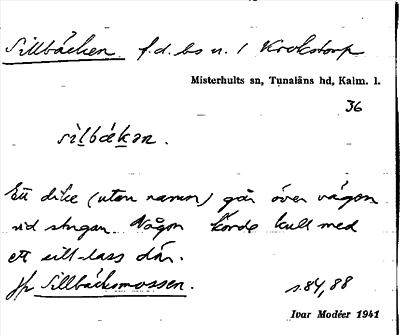 Sillbäcken f.d. bs u. 1 Krokstorp
Misterhults sn, Tunaläns hd, Kalm. l.
36
sìlbǽkən.
Ett dike (utan namn) går över vägen
vid stugan. Någon körde kull med
ett sill-lass där.
Jfr Sillbäcksmossen. s. 84, 88
Ivar Modéer 1941